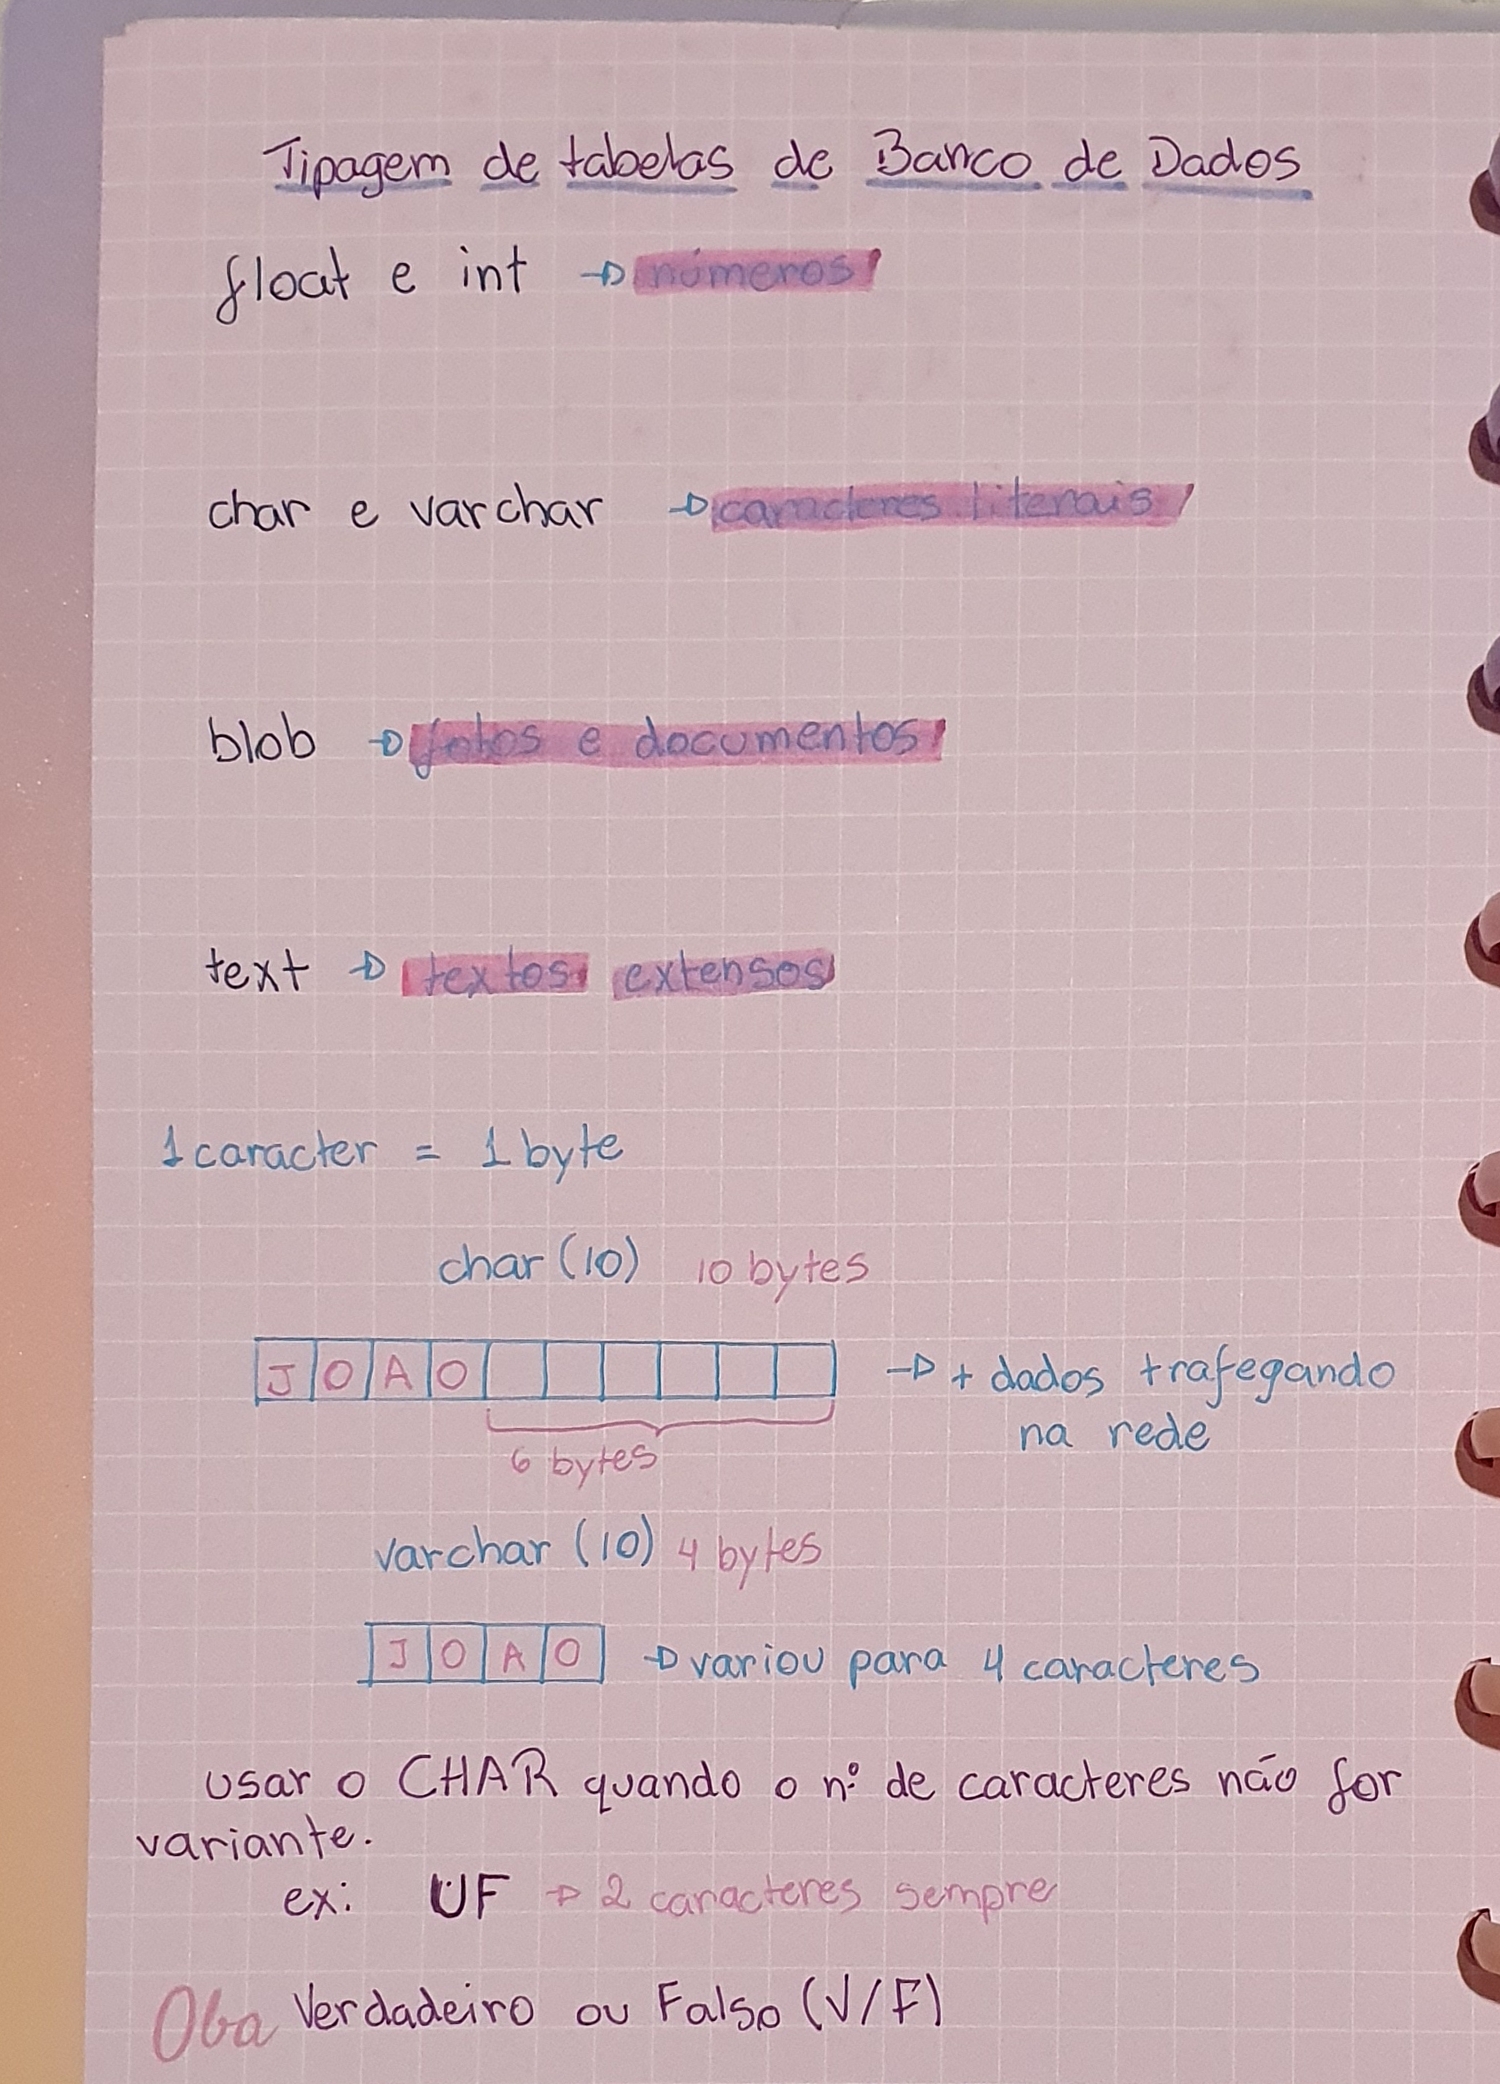 Tipagem de tabelas de Banco de Dados
float e int → números
char e varchar → caracteres literais
blob → fotos e documentos
text → textos extensos
1 caracter = 1 byte
char (10) 10 bytes
J O A O → + dados trafegando
na rede
6 bytes
varchar (10) 4 bytes
J O A O → variou para 4 caracteres
usar o CHAR quando o nº de caracteres não for
variante.
ex: UF → 2 caracteres sempre
Oba Verdadeiro ou Falso (V/F)